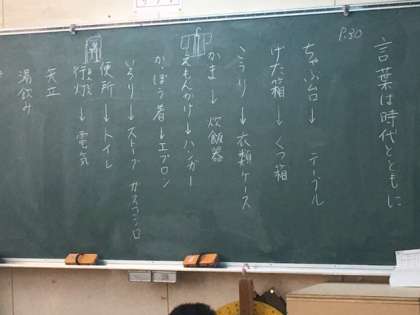 P.30
言葉は時代とともに
ちゃぶ台→テーブル
げた箱→くつ箱
こうり→衣類ケース
かま→炊飯器
えもんかけ→ハンガー
かっぽう着→エプロン
いろり→ストーブ ガスコンロ
便所→トイレ
行灯→電気
天立
湯飲み